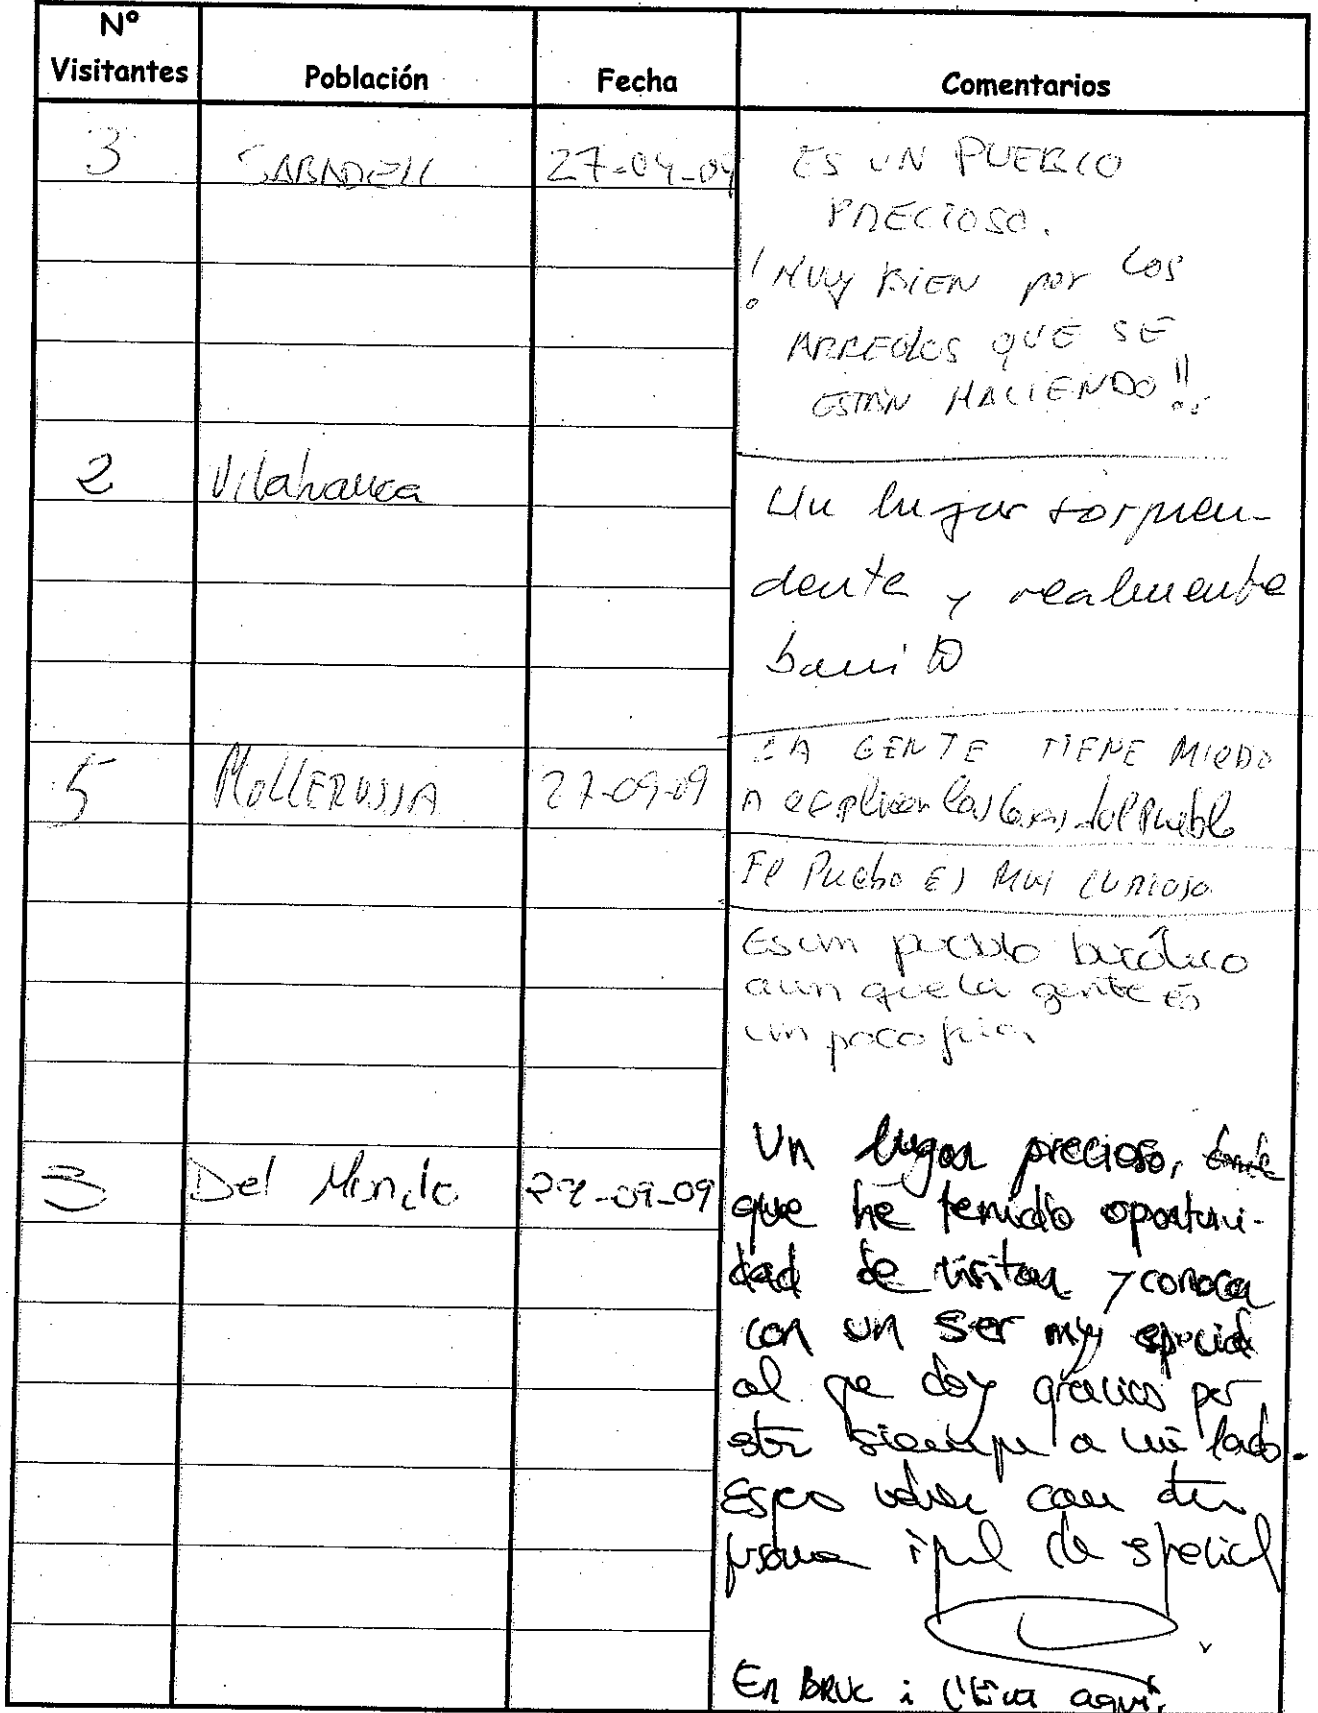 Nº
Visitantes Población Fecha Comentarios
3 SABADELL 27-09-09 ES UN PUEBLO
PRECIOSO.
¡MUY BIEN por LOS
ARREGLOS QUE SE
ESTÁN HACIENDO!!
2 Vilafranca Un lugar sorpren-
dente y realmente
bonito
5 MOLLERUSSA 27-09-09 LA GENTE TIENE MIEDO
A explicar las cosas del Pueblo
El Pueblo ES MUY CURIOSO
Es un pueblo bucólico
aun que la gente es
un poco fria
3 Del Mundo 27-09-09 Un lugar precioso,
que he tenido oportuni-
dad de visitar y conocer
con un ser muy especial
al que doy gracias por
estar siempre a mi lado.
Espero volver con
igual de special
En BRUC i aquí.